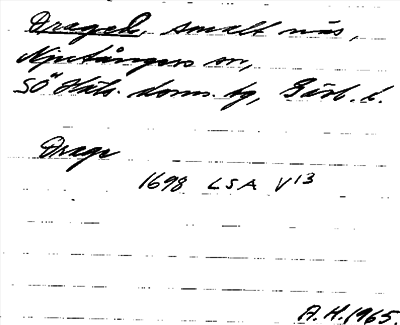 Draged, smalt näs,
Njutångers sn,
SÖ Häls. doms. tg, Gävl. l.
Drage
1698 LSA V13
A.H. 1965.